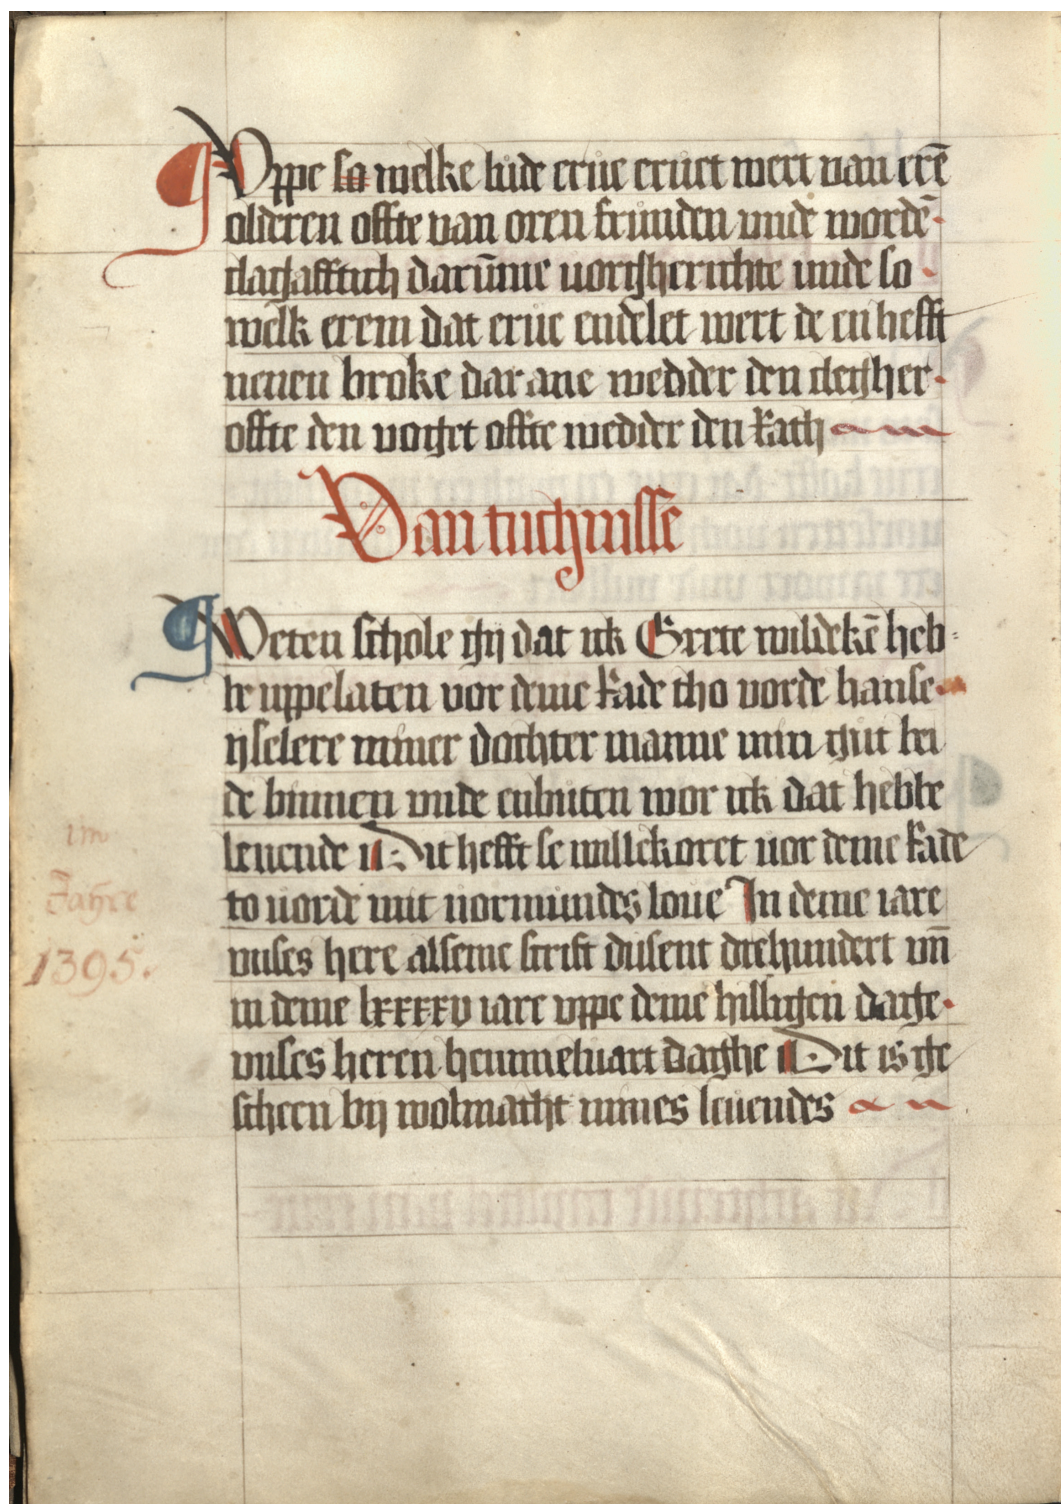 Uppe so welke lude erue eruet wert van erē
olderen offte van oren frunden unde wordē
clagafftich darūme uorgherichte unde so
welk erem dat erue endelet wert de en hefft
nenen broke dar ane wedder den clegher
offte den voghet offte wedder den Rath
Van tuchnisse
Weten schole gy dat ick Grete wildekē heb
be uppelaten vor deme Rade tho vorde hanse
yselere miner dochter manne min gut bei
de binnen unde enbuten wor ick dat hebbe
leuende Dit hefft se willekoret vor deme Rade
to uorde mit uormundes loue In deme iare
unses here alseme scrift dusent drehundert un̄
in deme lxxxxv iare uppe deme hilligen daghe
unses heren hemmeluart daghe Dit is ghe
scheen by wolmacht mines leuendes
im
Jahre
1395.